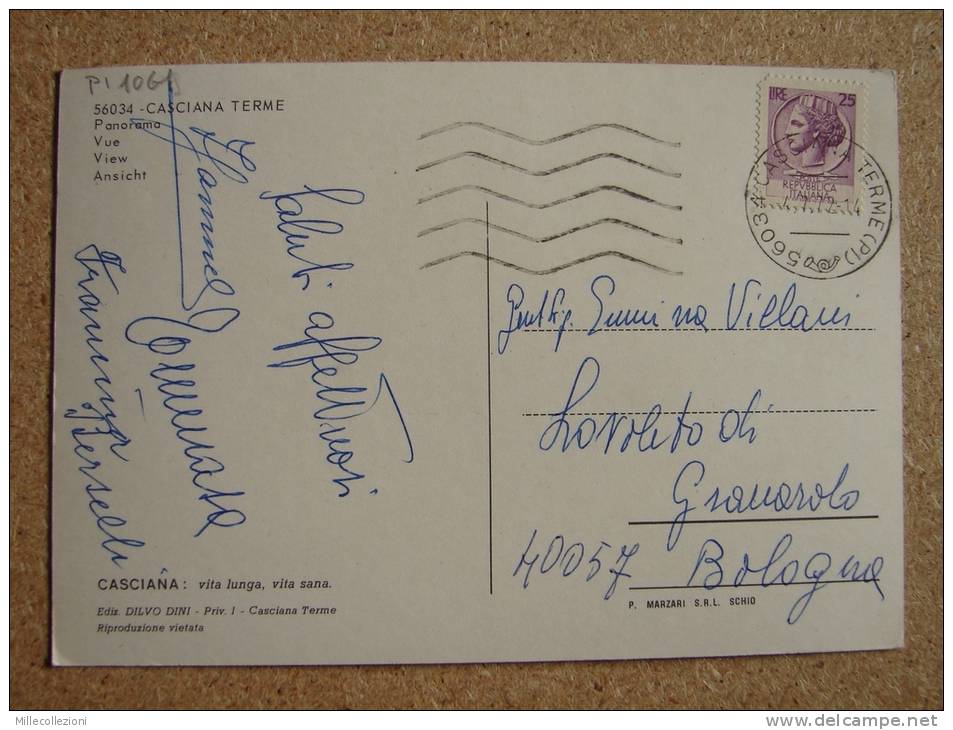 PI 106
56034 - CASCIANA TERME
Panorama
Vue
View
Ansicht
Saluti affettuosi
Tommesani
Franca
Berselli
CASCIANA: vita lunga, vita sana.
Ediz. DILVO DINI - Priv. I - Casciana Terme
Riproduzione vietata
LIRE 25
REPVBBLICA
ITALIANA
56034 CASCIANA TERME (PI)
Gent. Sig. Ermina Villani
Lovoleto di
Granarolo
40057 Bologna
P. MARZARI S.R.L. SCHIO
Millecollezioni
www.delcampe.net